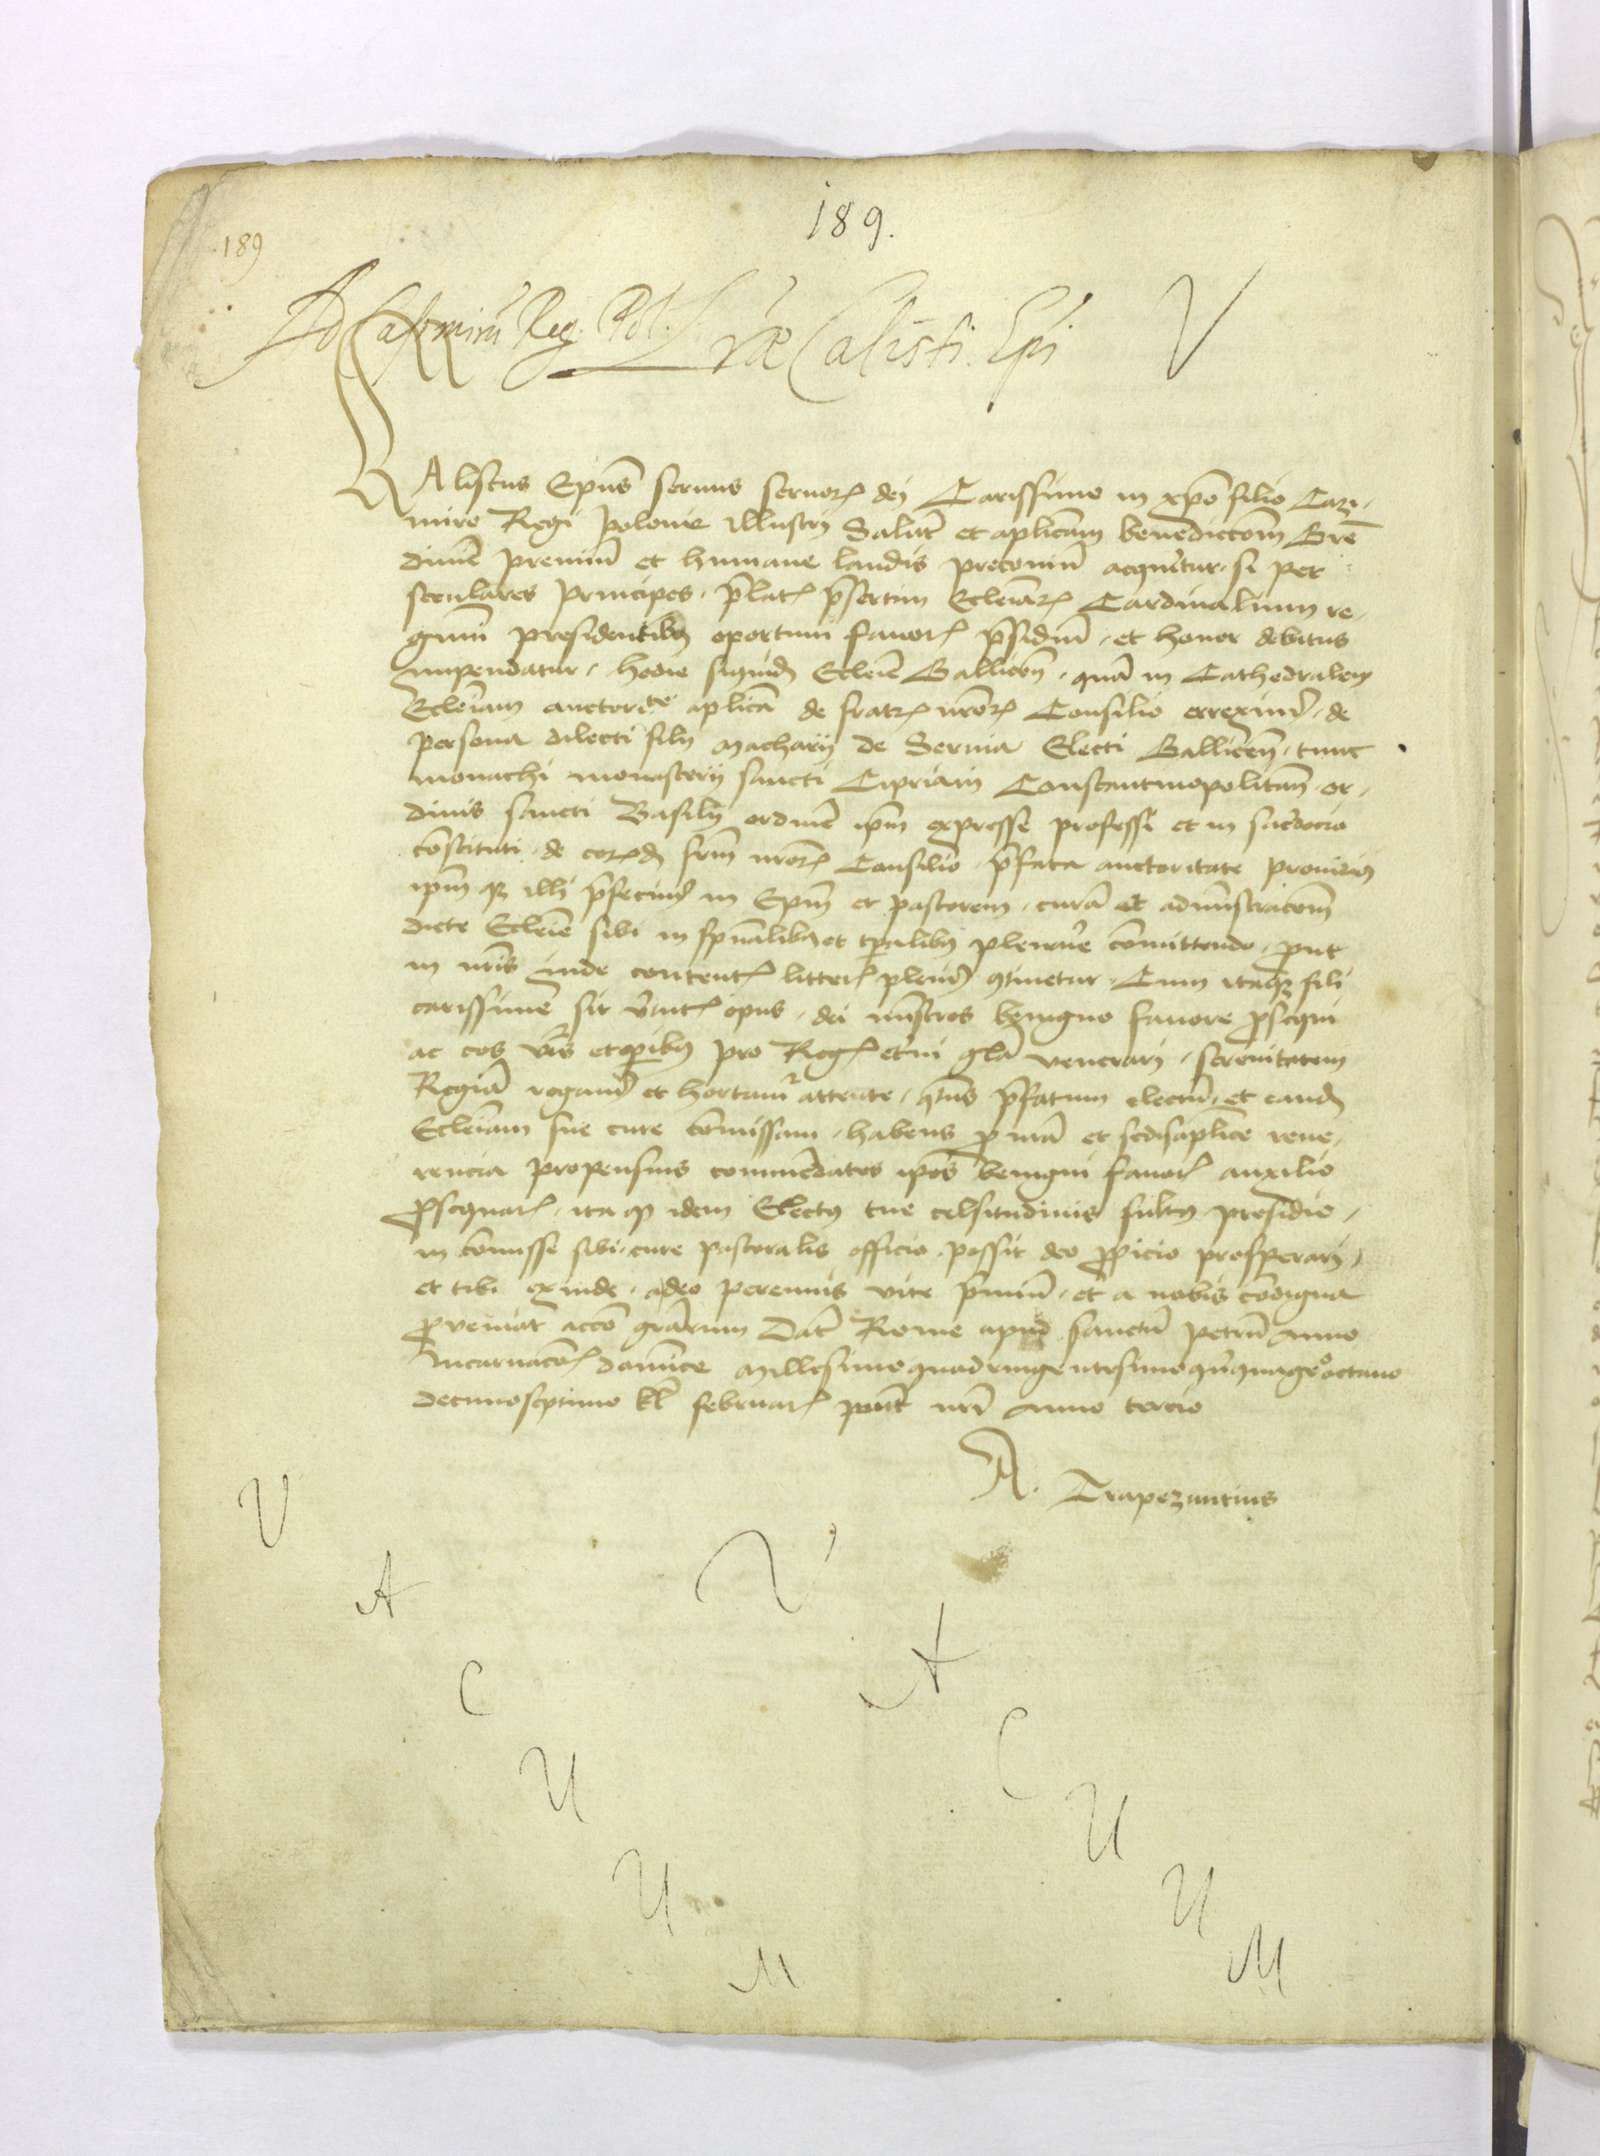 189.
189
Ad Casimirū Reg. Pol. Lr̄æ Calisti Epi
CAlistus Ep̄us seruus seruorꝫ dei Carissimo in xp̄o filio Cazi,
miro Regi Polonie illustri Salut̄ et ap̄licam benedictōm Gr̄e
diuīe premiū et humane laudis preconiū acquiritur, si per
seculares principes, p̄latꝫ p̄sertim Eccl̄iarꝫ Cardinalium re,
gimini presidentibꝫ oportuni fauorꝫ p̄sidiū, et honor debitus
impendatur, hodie siquidꝫ Eccl̄ie Gallicen̄, quā in Cathedralem
Eccl̄iam auctorit̄e ap̄lica de fratrꝫ n̄rorꝫ Consilio erreximꝰ, de
persona dilecti filij Macharij de Seruia Electi Gallicen̄, tunc
monachi monasterij sancti Cipriani Constantinopolitan̄ or,
dinis sancti Basilij ordinē ip̄m expresse professi et in sac̄docio
cōstituti, de eorꝫdꝫ fr̄m n̄rorꝫ Consilio, p̄fata auctoritate prouidimꝰ
ip̄mqꝫ illi p̄fecimꝰ in Ep̄m et pastorem, curā et administracōem
dicte Eccl̄ie sibi in sp̄ualibꝫ et tp̄alibꝫ plenarie cōmittendo, prout
in n̄ris inde contentꝫ litterꝫ pleniꝰ 9tinetur, Cum itaqꝫ fili
carissime sit v̄tutꝫ opus, dei ministros benigno fauore ꝓsequi
ac eos v̄bis et op̄ibꝫ pro Regꝫ et̄ni gl̄a venerari, serenitatem
Regiā rogamꝰ et hortamur attente, quatenꝰ p̄fatum electū, et eandꝫ
Eccl̄iam sue cure cōmissam, habens ꝓ n̄ra et sedis ap̄lice reue,
rencia propensius commendatos ip̄os benigni fauorꝫ auxilio
ꝓsequarꝫ, ita qꝫ idem Electꝰ tue celsitudinis fultꝰ presidio,
in cōmisse sibi cure pastoralis officio, possit deo ꝓpicio prosperari,
et tibi exinde, a deo perennis vite p̄miū, et a nobis cōdigna
ꝓueniat acc̄o gr̄arum Dat̄ Rome apud sanctū petrū Anno
Incarnacōꝫ dominice Millesimoquadringentesimoquīquageoctauo
decimoseptimo kl̄ februarꝫ pont̄ n̄ri Anno tercio
A. Trapezuntius
V
V
A
C
U
U
M
V
A
C
U
U
M